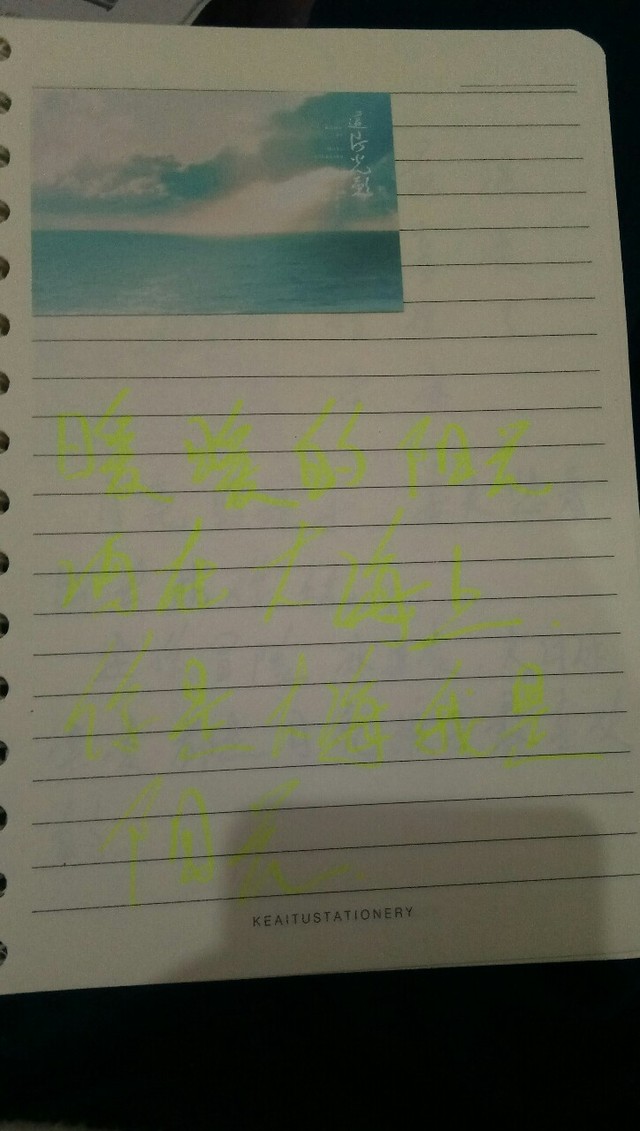 光影
暖暖的阳光
洒在大海上.
你是大海我是
阳光.
KEAITUSTATIONERY